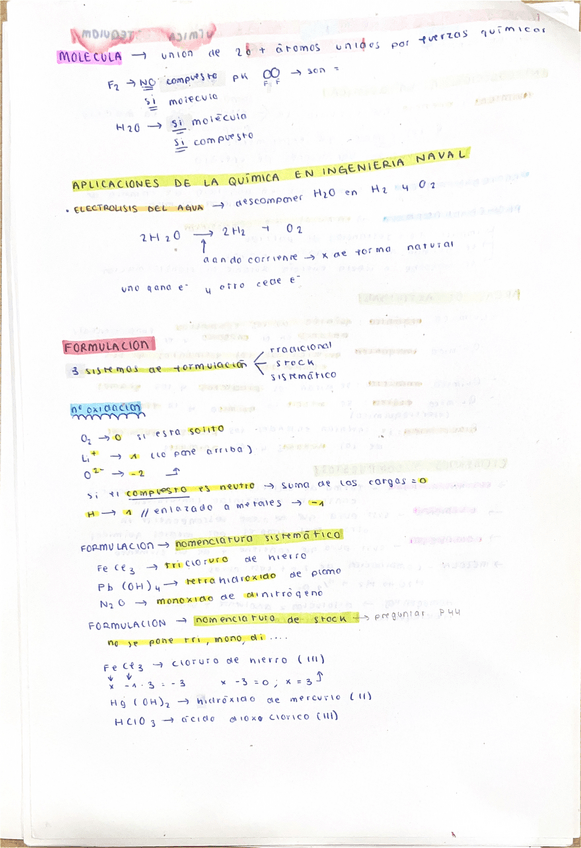 MOLECULA → union de 2 o + átomos unidos por fuerzas químicas
F2 → NO compuesto pk → son =
F, F
SI molecula
H2O → SI molécula
SI compuesto
APLICACIONES DE LA QUÍMICA EN INGENIERIA NAVAL
• ELECTROLISIS DEL AGUA → descomponer H2O en H2 y O2
2H2O → 2H2 + O2
↑
dando corriente → x de forma natural
uno gana e- y otro cede e-
FORMULACION
3 sistemas de formulación
tradicional
stock
sistemático
nº oxidacion
O2 → 0 si esta solito
Li+ → 1 (lo pone arriba)
O2- → -2
si el compuesto es neutro → suma de las cargas = 0
H → 1 // enlazado a metales → -1
FORMULACION → nomenclatura sistemática
FeCl3 → tricloruro de hierro
Pb(OH)4 → tetrahidróxido de plomo
N2O → monóxido de dinitrógeno
FORMULACIÓN → nomenclatura de stock → preguntar P44
no se pone tri, mono, di ....
FeCl3 → cloruro de hierro (III)
x -1·3 = -3 x -3 = 0 ; x = 3
Hg(OH)2 → hidróxido de mercurio (II)
HClO3 → ácido dioxo clorico (III)